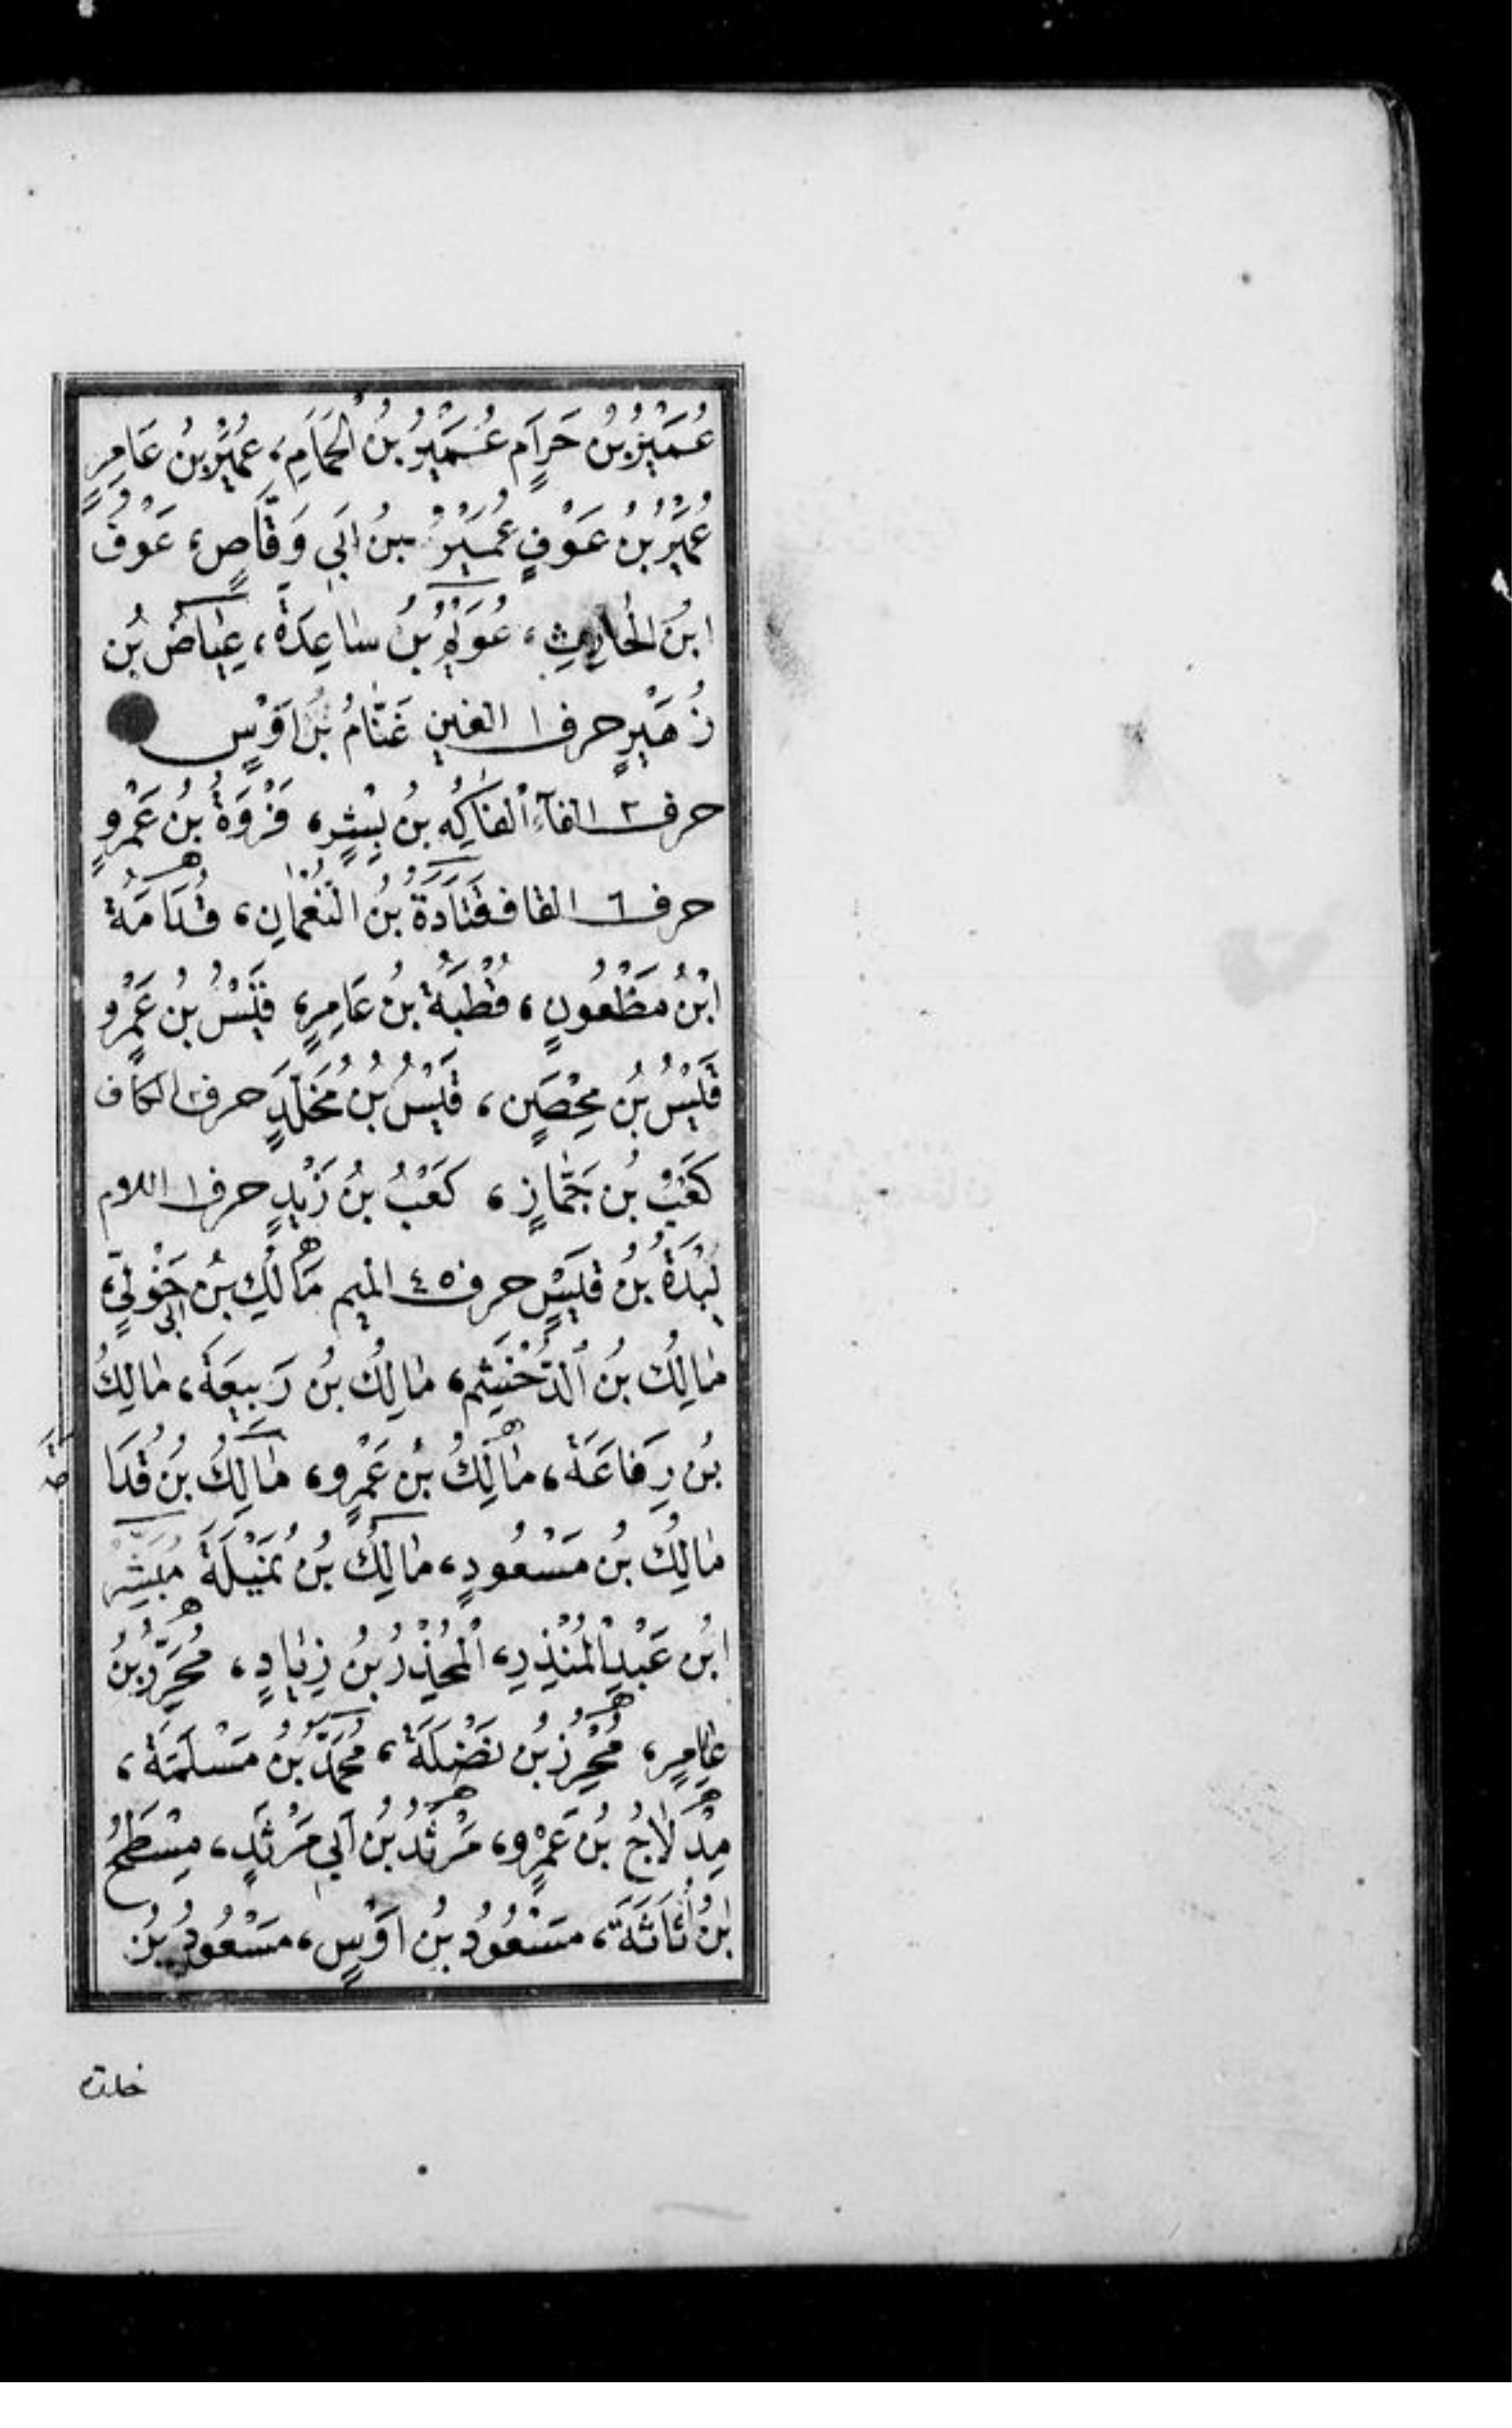 عُمَيْرُ بْنُ حَرَامٍ عُمَيْرُ بْنُ الْحُمَامِ، عُمَيْرُ بْنُ عَامِرٍ
عُمَيْرُ بْنُ عَوْفٍ عُمَيْرُ بْنُ اَبِي وَقَّاصٍ، عَوْفُ
ابْنُ الْحَارِثِ، عُوَيْمُ بْنُ سَاعِدَةَ، عِيَاضُ بْنُ
زُهَيْرٍ حرف ١ الغين غَنَّامُ بْنُ اَوْسٍ
حرف ٢ الفآء الْفَاكِهُ بْنُ بِشْرٍ، فَرْوَةُ بْنُ عَمْرٍو
حرف ٦ القاف قَتَادَةُ بْنُ النُّعْمَانِ، قُدَامَةُ
ابْنُ مَظْعُونٍ، قُطْبَةُ بْنُ عَامِرٍ، قَيْسُ بْنُ عَمْرٍو
قَيْسُ بْنُ مِحْصَنٍ، قَيْسُ بْنُ مُخَلَّدٍ حرف ٢ الكاف
كَعْبُ بْنُ جَمَّازٍ، كَعْبُ بْنُ زَيْدٍ حرف ١ اللام
لِبْدَةُ بْنُ قَيْسٍ حرف ٤٥ الميم مَالِكُ بْنُ اَبِي خَوْلِيٍّ،
مَالِكُ بْنُ الدُّخْشُمِ، مَالِكُ بْنُ رَبِيعَةَ، مَالِكُ
بْنُ رِفَاعَةَ، مَالِكُ بْنُ عَمْرٍو، مَالِكُ بْنُ قُدَا
مَةَ
مَالِكُ بْنُ مَسْعُودٍ، مَالِكُ بْنُ نُمَيْلَةَ مُبَشِّرُ
ابْنُ عَبْدِ الْمُنْذِرِ، الْمُجَذَّرُ بْنُ زِيَادٍ، مُحَرَّرُ بْنُ
عَامِرٍ، مُحْرِزُ بْنُ نَضْلَةَ، مُحَمَّدُ بْنُ مَسْلَمَةَ،
مِدْلَاجُ بْنُ عَمْرٍو، مَرْثَدُ بْنُ اَبِي مَرْثَدٍ، مِسْطَحُ
ابْنُ اُثَاثَةَ، مَسْعُودُ بْنُ اَوْسٍ، مَسْعُودُ بْنُ
خلدة